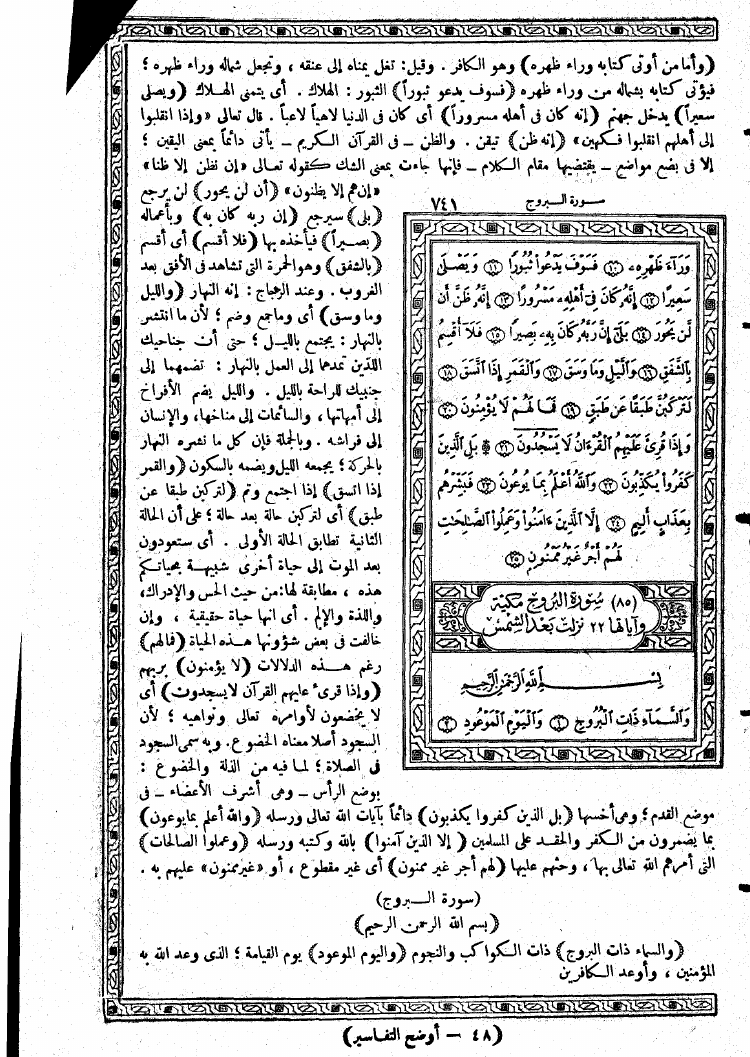 ﴿وأما من أوتى كتابه وراء ظهره﴾ وهو الكافر . وقيل : تغل يمناه إلى عنقه ، وتجعل شماله وراء ظهره ؛
فيؤتى كتابه بشماله من وراء ظهره ﴿فسوف يدعو ثبوراً﴾ الثبور : الهلاك . أى يتمنى الهلاك ﴿ويصلى
سعيراً﴾ يدخل جهنم ﴿إنه كان فى أهله مسروراً﴾ أى كان فى الدنيا لاهياً لاعباً . قال تعالى «وإذا انقلبوا
إلى أهلهم انقلبوا فكهين» ﴿إنه ظن﴾ تيقن . والظن ــ فى القرآن الكريم ــ يأتى دائماً بمعنى اليقين ؛
إلا فى بضع مواضع ــ يقتضيها مقام الكلام ــ فإنها جاءت بمعنى الشك كقوله تعالى «إن نظن إلا ظنا»
«إن هم إلا يظنون» ﴿أن لن يحور﴾ لن يرجع
﴿بلى﴾ سيرجع ﴿إن ربه كان به﴾ وبأعماله
﴿بصيراً﴾ فيأخذه بها ﴿فلا أقسم﴾ أى أقسم
﴿بالشفق﴾ وهو الحمرة التى تشاهد فى الأفق بعد
الغروب . وعند الزجاج : إنه النهار ﴿والليل
وما وسق﴾ أى وما جمع وضم ؛ لأن ما انتشر
بالنهار : يجتمع بالليل ؛ حتى أن جناحيك
اللذين تمدهما إلى العمل بالنهار : تضمهما إلى
جنبيك للراحة بالليل . والليل يضم الأفراخ
إلى أمهاتها ، والسائمات إلى مناخها، والإنسان
إلى فراشه . وبالجملة فإن كل ما نشره النهار
بالحركة ؛ يجمعه الليل ويضمه بالسكون ﴿والقمر
إذا اتسق﴾ إذا اجتمع وتم ﴿لتركبن طبقا عن
طبق﴾ أى لتركبن حالة بعد حالة ؛ على أن الحالة
الثانية تطابق الحالة الأولى . أى ستعودون
بعد الموت إلى حياة أخرى شبيهة بحياتكم
هذه ، مطابقة لها: من حيث الحس والإدراك،
واللذة والألم . أى انها حياة حقيقية ، وإن
خالفت فى بعض شؤونها هذه الحياة ﴿فمالهم﴾
رغم هذه الدلالات ﴿لا يؤمنون﴾ بربهم
﴿وإذا قرىء عليهم القرآن لا يسجدون﴾ أى
لا يخضعون لأوامره تعالى ونواهيه ؛ لأن
السجود أصلا معناه الخضوع . وبه سمى السجود
فى الصلاة ؛ لما فيه من الذلة والخضوع :
بوضع الرأس ــ وهى أشرف الأعضاء ــ فى
سورة البروج ٧٤١
وَرَآءَ ظَهْرِهِۦ ⑩ فَسَوْفَ يَدْعُوا۟ ثُبُورًا ⑪ وَيَصْلَىٰ
سَعِيرًا ⑫ إِنَّهُۥ كَانَ فِىٓ أَهْلِهِۦ مَسْرُورًا ⑬ إِنَّهُۥ ظَنَّ أَن
لَّن يَحُورَ ⑭ بَلَىٰٓ إِنَّ رَبَّهُۥ كَانَ بِهِۦ بَصِيرًا ⑮ فَلَآ أُقْسِمُ
بِٱلشَّفَقِ ⑯ وَٱلَّيْلِ وَمَا وَسَقَ ⑰ وَٱلْقَمَرِ إِذَا ٱتَّسَقَ ⑱
لَتَرْكَبُنَّ طَبَقًا عَن طَبَقٍ ⑲ فَمَا لَهُمْ لَا يُؤْمِنُونَ ⑳
وَإِذَا قُرِئَ عَلَيْهِمُ ٱلْقُرْءَانُ لَا يَسْجُدُونَ ㉑ ۩ بَلِ ٱلَّذِينَ
كَفَرُوا۟ يُكَذِّبُونَ ㉒ وَٱللَّهُ أَعْلَمُ بِمَا يُوعُونَ ㉓ فَبَشِّرْهُم
بِعَذَابٍ أَلِيمٍ ㉔ إِلَّا ٱلَّذِينَ ءَامَنُوا۟ وَعَمِلُوا۟ ٱلصَّـٰلِحَـٰتِ
لَهُمْ أَجْرٌ غَيْرُ مَمْنُونٍ ㉕
(٨٥) سُورَة البُروج مكيّة
وآياتها ٢٢ نزلت بَعد الشمسْ
بِسْمِ ٱللَّهِ ٱلرَّحْمَـٰنِ ٱلرَّحِيمِ
وَٱلسَّمَآءِ ذَاتِ ٱلْبُرُوجِ ① وَٱلْيَوْمِ ٱلْمَوْعُودِ ②
موضع القدم ؛ وهى أخسها ﴿بل الذين كفروا يكذبون﴾ دائماً بآيات الله تعالى ورسله ﴿والله أعلم بما يوعون﴾
بما يضمرون من الكفر والحقد على المسلمين ﴿إلا الذين آمنوا﴾ بالله وكتبه ورسله ﴿وعملوا الصالحات﴾
التى أمرهم الله تعالى بها ، وحثهم عليها ﴿لهم أجر غير ممنون﴾ أى غير مقطوع ، أو «غير ممنون» عليهم به .
﴿سورة البروج﴾
﴿بسم الله الرحمن الرحيم﴾
﴿والسماء ذات البروج﴾ ذات الكواكب والنجوم ﴿واليوم الموعود﴾ يوم القيامة ؛ الذى وعد الله به
المؤمنين ، وأوعد الكافرين
(٤٨ — أوضح التفاسير)